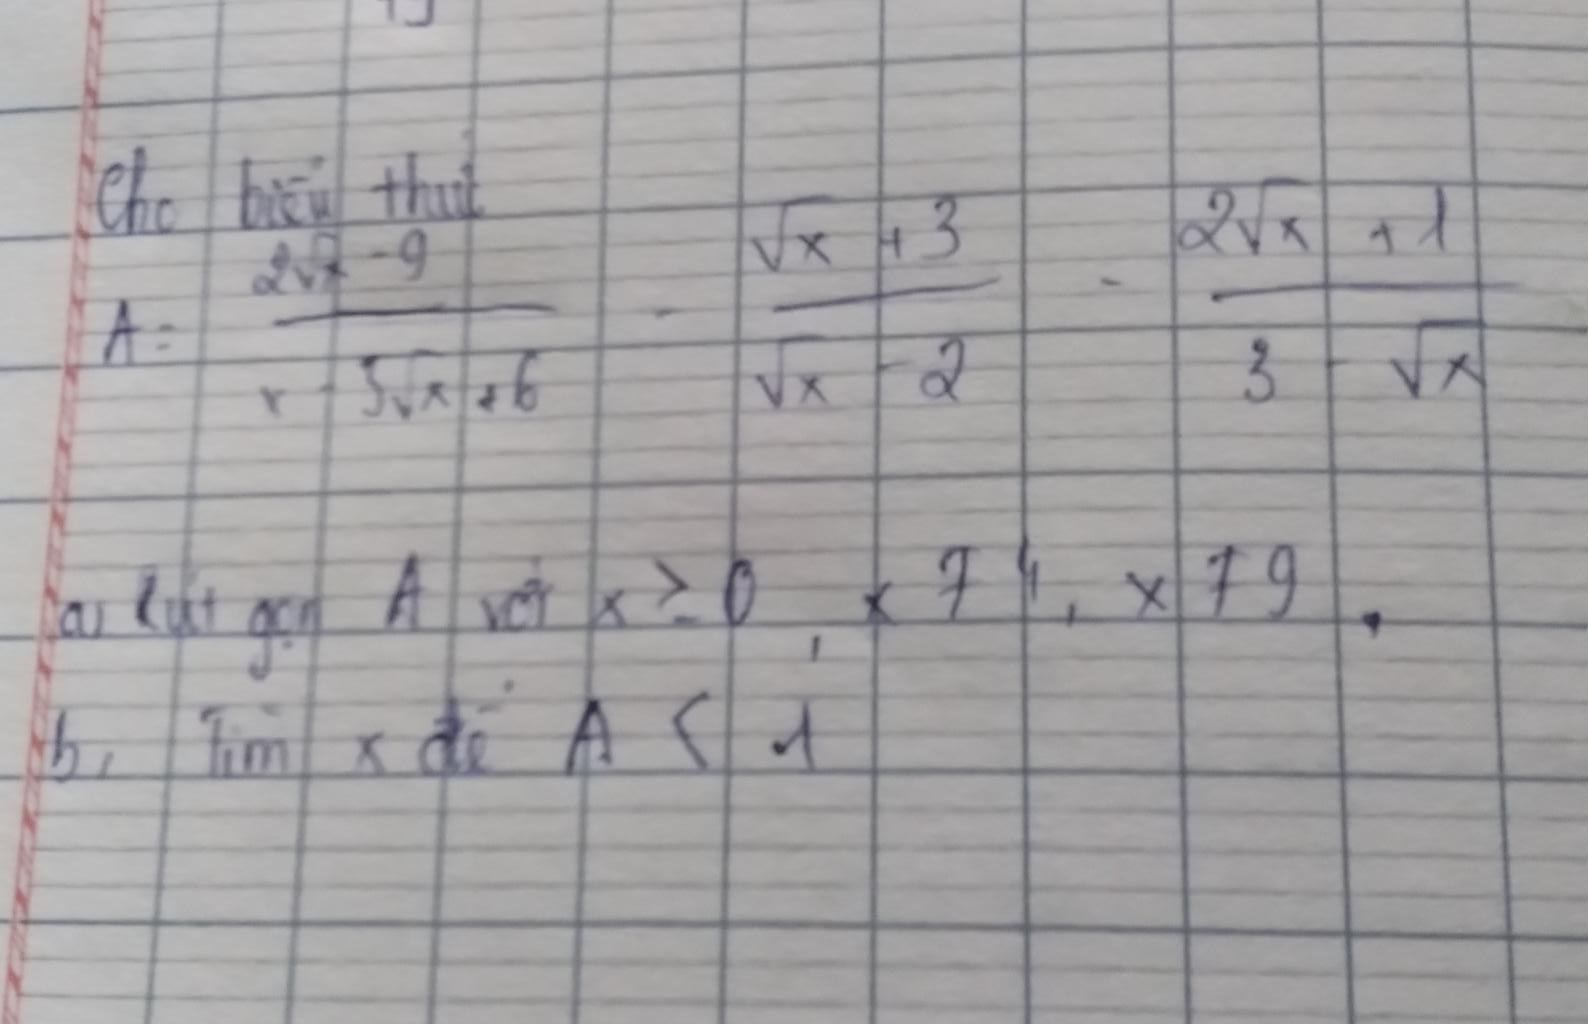 Cho biểu thức
A = \frac{2\sqrt{x} - 9}{x - 5\sqrt{x} + 6} - \frac{\sqrt{x} + 3}{\sqrt{x} - 2} - \frac{2\sqrt{x} + 1}{3 - \sqrt{x}}
a, Rút gọn A với x ≥ 0, x ≠ 4, x ≠ 9.
b, Tìm x để A < 1